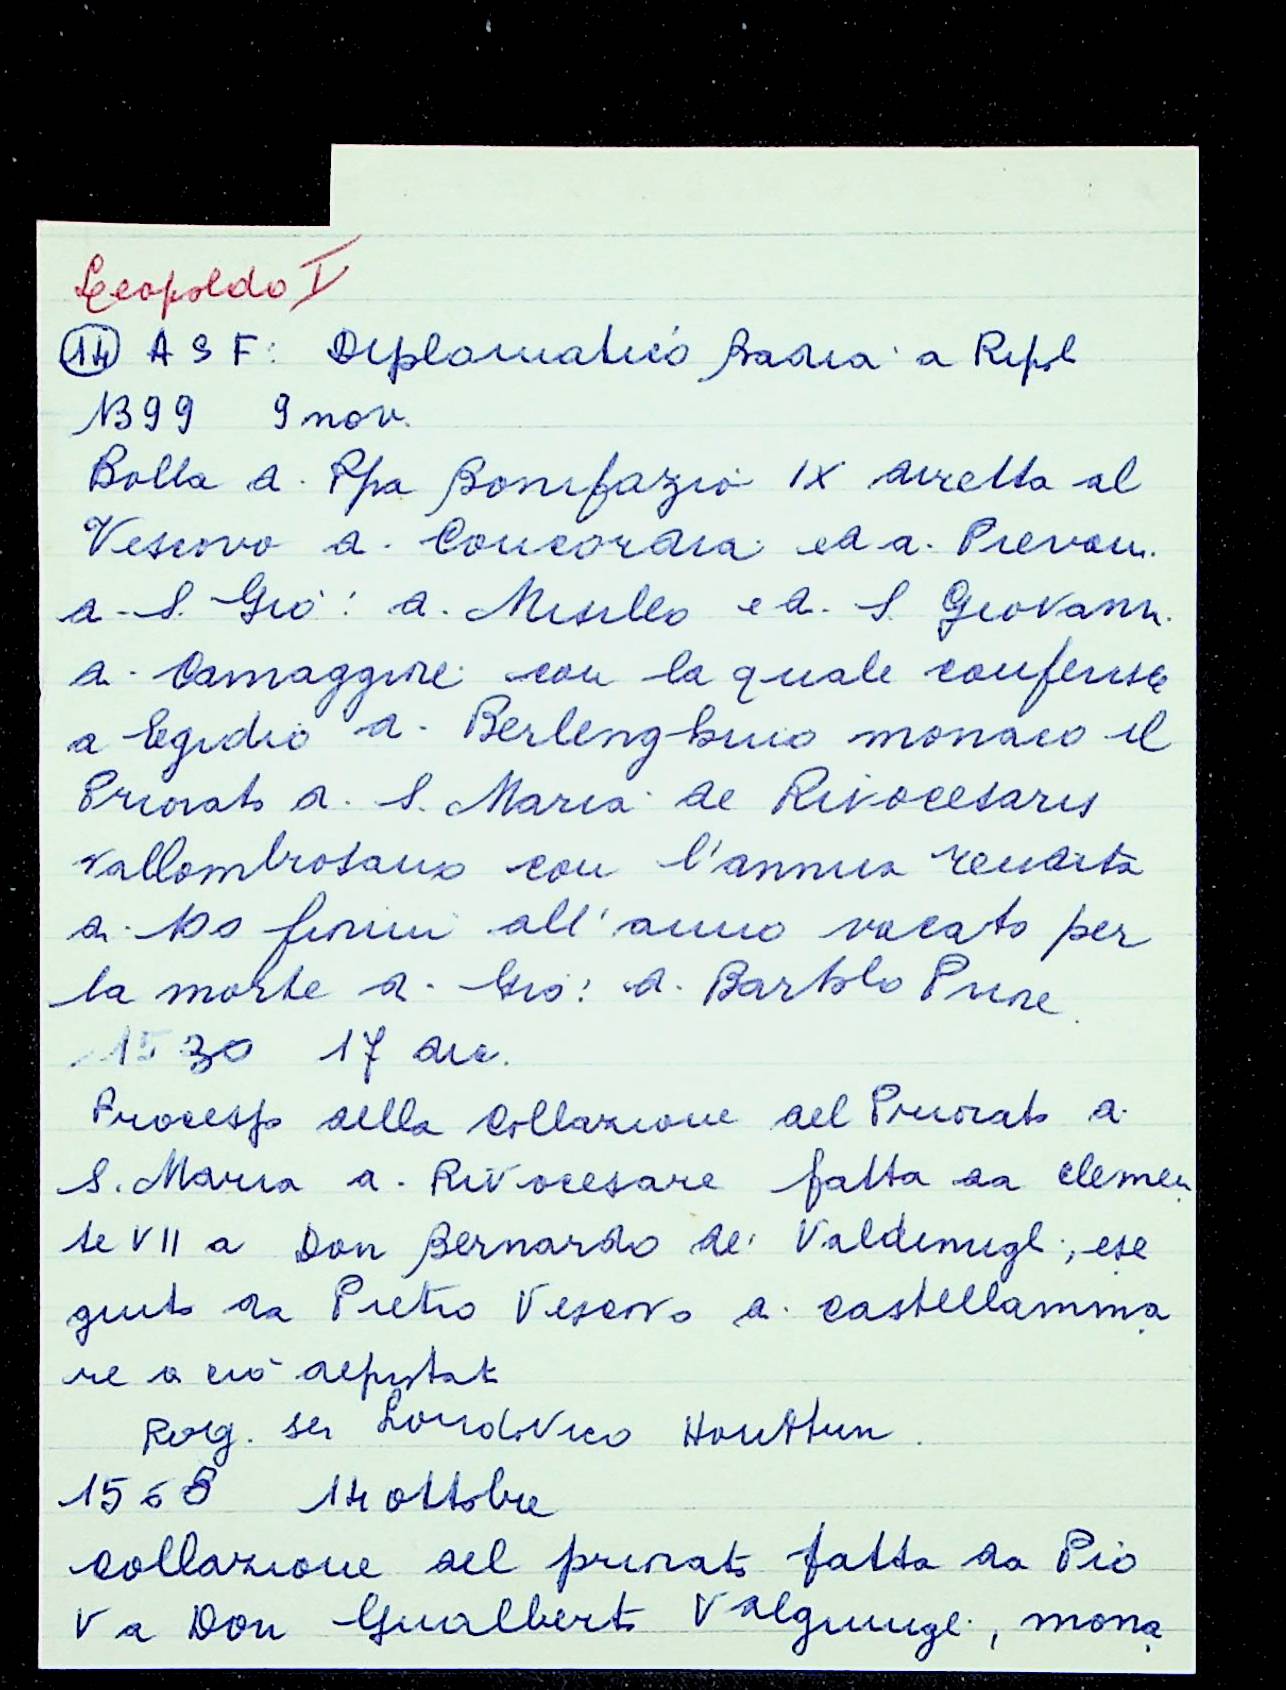 Leopoldo I
14 A S F: Diplomatico Badia a Ripol
1399 9 nov.
Bolla di Ppa Bonifazio IX diretta al
Vescovo di Concordia ed ai Pievani
di S. Gio: di Misileo e di S. Giovanni
di Camaggiore con la quale conferisce
a Egidio di Berlenghino monaco il
Priorato di S. Maria de Rivocesaris
vallombrosano con l'annua rendita
di 100 fiorini all'anno vacato per
la morte di Gio: di Bartolo Priore.
1530 17 dic.
Processo della Collazione del Priorato di
S. Maria di Rivocesare fatta da Clemen
te VII a Don Bernardo de' Valdinigli, ese
guito da Pietro Vescovo di Castellamma
re a ciò deputato
Rog. ser Lourdivico
1568 14 ottobre
Collazione del priorato fatta da Pio
V a Don Gualberto Valguinigi, mona